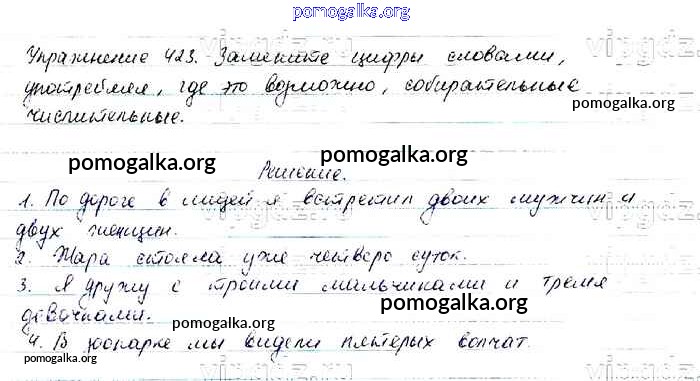 pomogalka.org
Упражнение 423. Замените цифры словами,
употребляя, где это возможно, собирательные
pomogalka.org
числительные.
pomogalka.org
pomogalka.org
Решение.
1. По дороге в лицей я встретил двоих мужчин и
двух женщин.
2. Жара стояла уже четверо суток.
3. Я дружу с троими мальчиками и тремя
pomogalka.org
девочками.
pomogalka.org
4. В зоопарке мы видели пятерых волчат.
pomogalka.org
vipgdz.ru
vipgdz.ru
vipgdz.ru